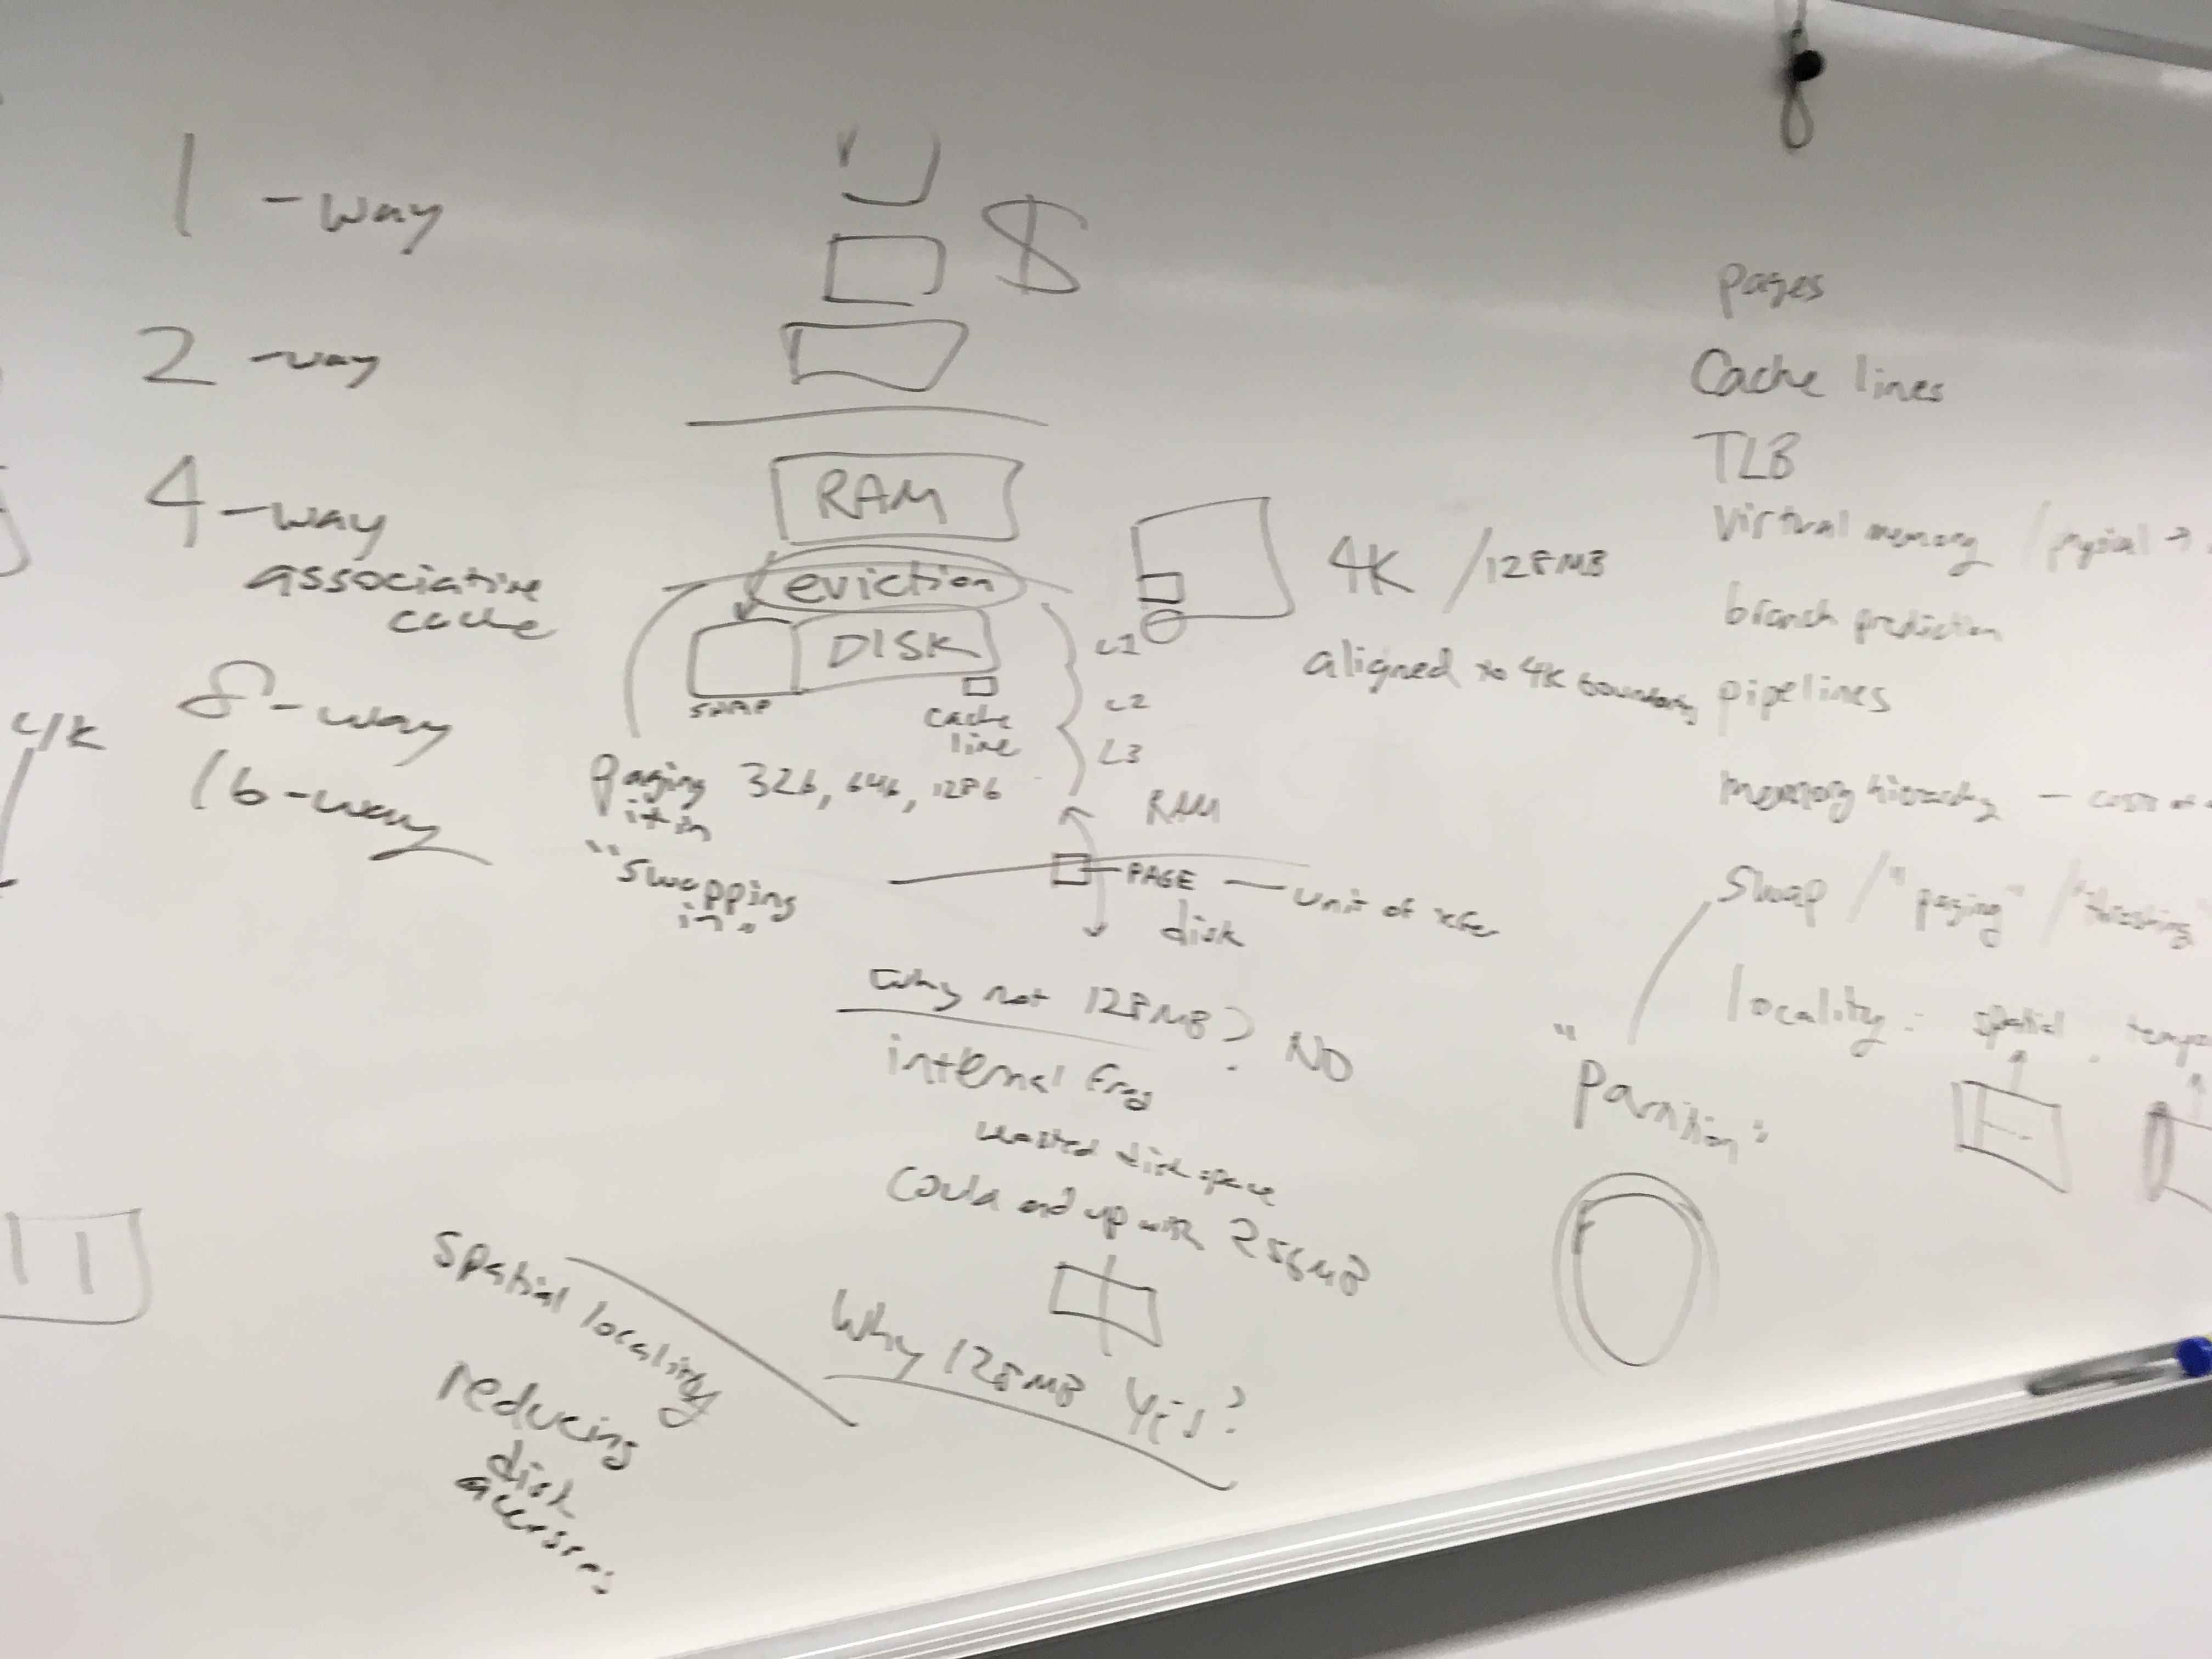 1 -way
2 -way
4 -way
associative
cache
8 -way
16 -way
4k
$
RAM
eviction
DISK
SWAP
cache
line
Paging
it in
32b, 64b, 128b
"swapping
in"
L1
L2
L3
RAM
PAGE — unit of xfer
disk
4K / 128MB
aligned to 4K boundary
Why not 128MB? NO
internal frag
wasted disk space
Could end up with 256MB
Why 128MB Yes?
spatial locality
reducing
disk
accesses
pages
Cache lines
TLB
virtual memory /
branch prediction
pipelines
memory hierarchy — cost of
Swap / "paging" / "thrashing"
locality: spatial,